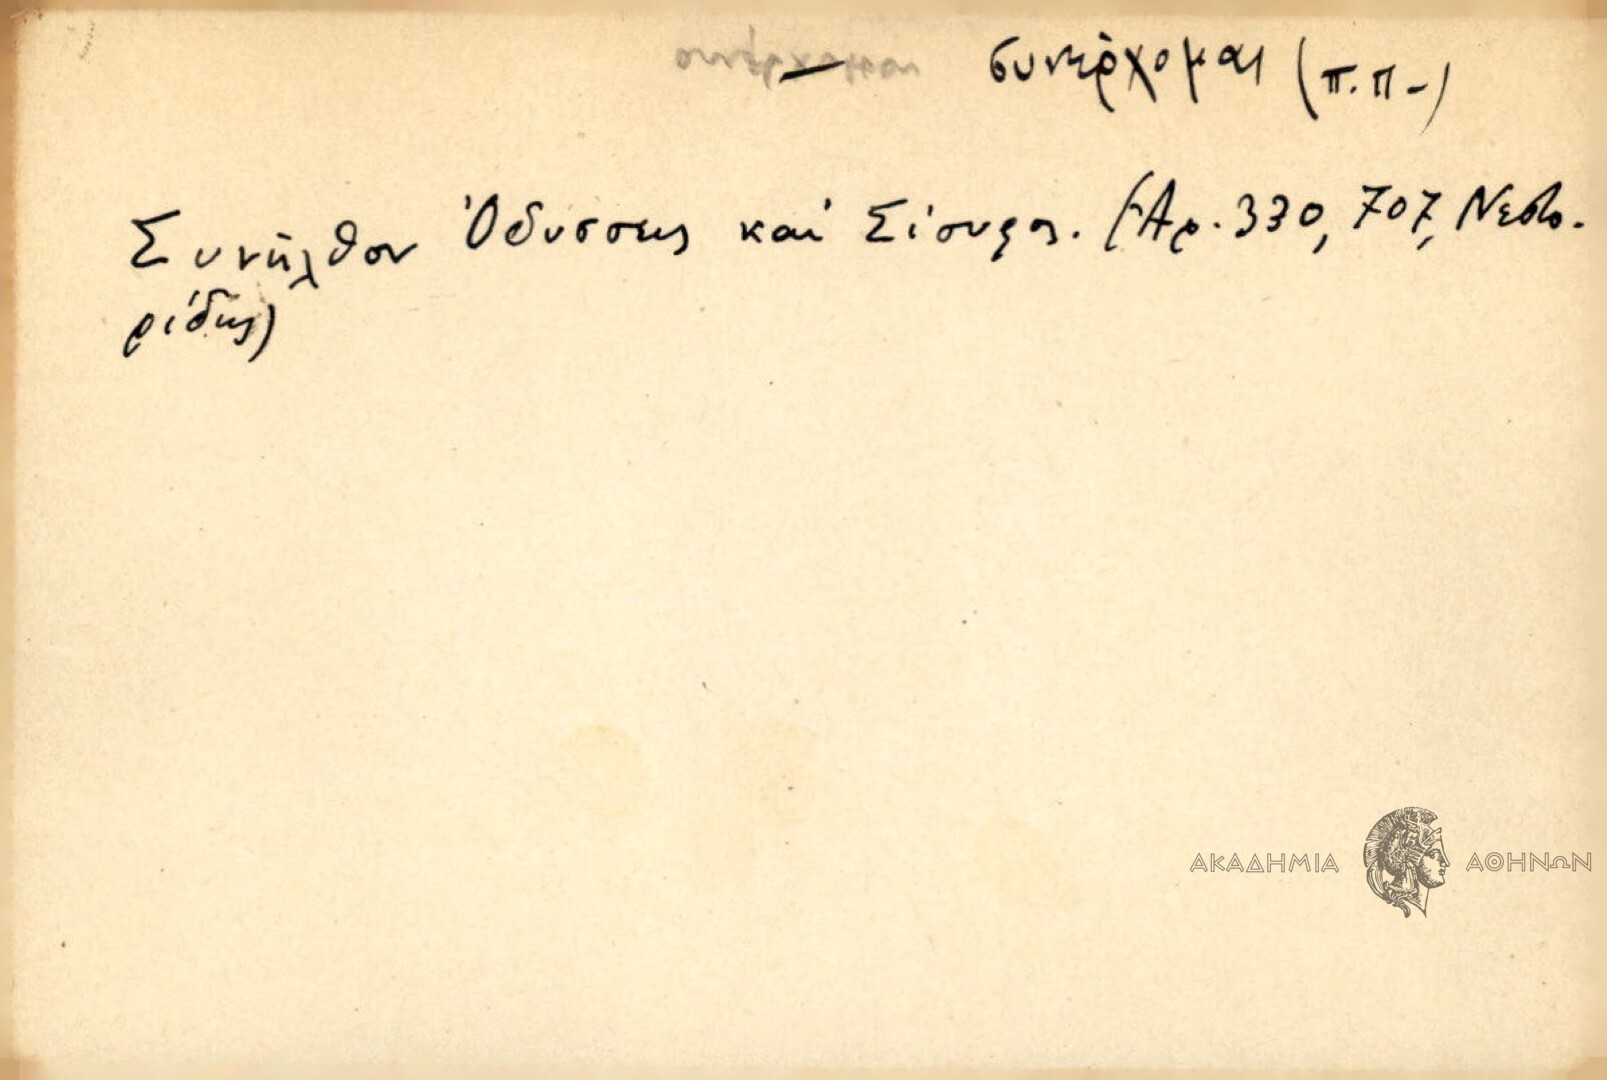 συνέρχομαι (π.π-)
Συνῆλθον Ὀδυσσεὺς καὶ Σίσυφος. (Ἀρ. 330, 707, Νεστο-
ρίδης)
ΑΚΑΔΗΜΙΑ ΑΘΗΝΩΝ